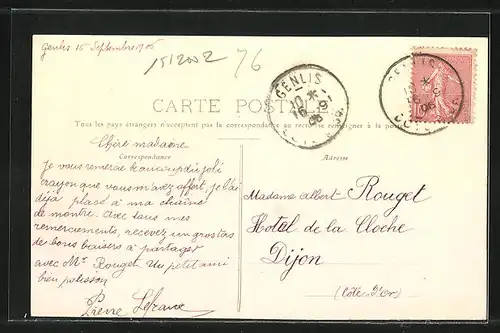 Genlis 15 Septembre 1906
1512002
76
GENLIS
10 *
16 -9
06
COTE D'OR
GENLIS
10 *
16 -9
06
COTE D'OR
CARTE POSTALE
Tous les pays étrangers n'acceptent pas la correspondance au recto se renseigner à la poste
Correspondance
Adresse
Chère madame
Je vous remercie beaucoup du joli
crayon que vous m'avez offert, je l'ai
déjà placé à ma chaîne
de montre. Avec tous mes
remerciements, recevez un gros tas
de bons baisers à partager
avec Mr Rouget. Un petit ami
bien polisson
Pierre
Madame Albert Rouget
Hotel de la Cloche
Dijon
(Côte d'Or)